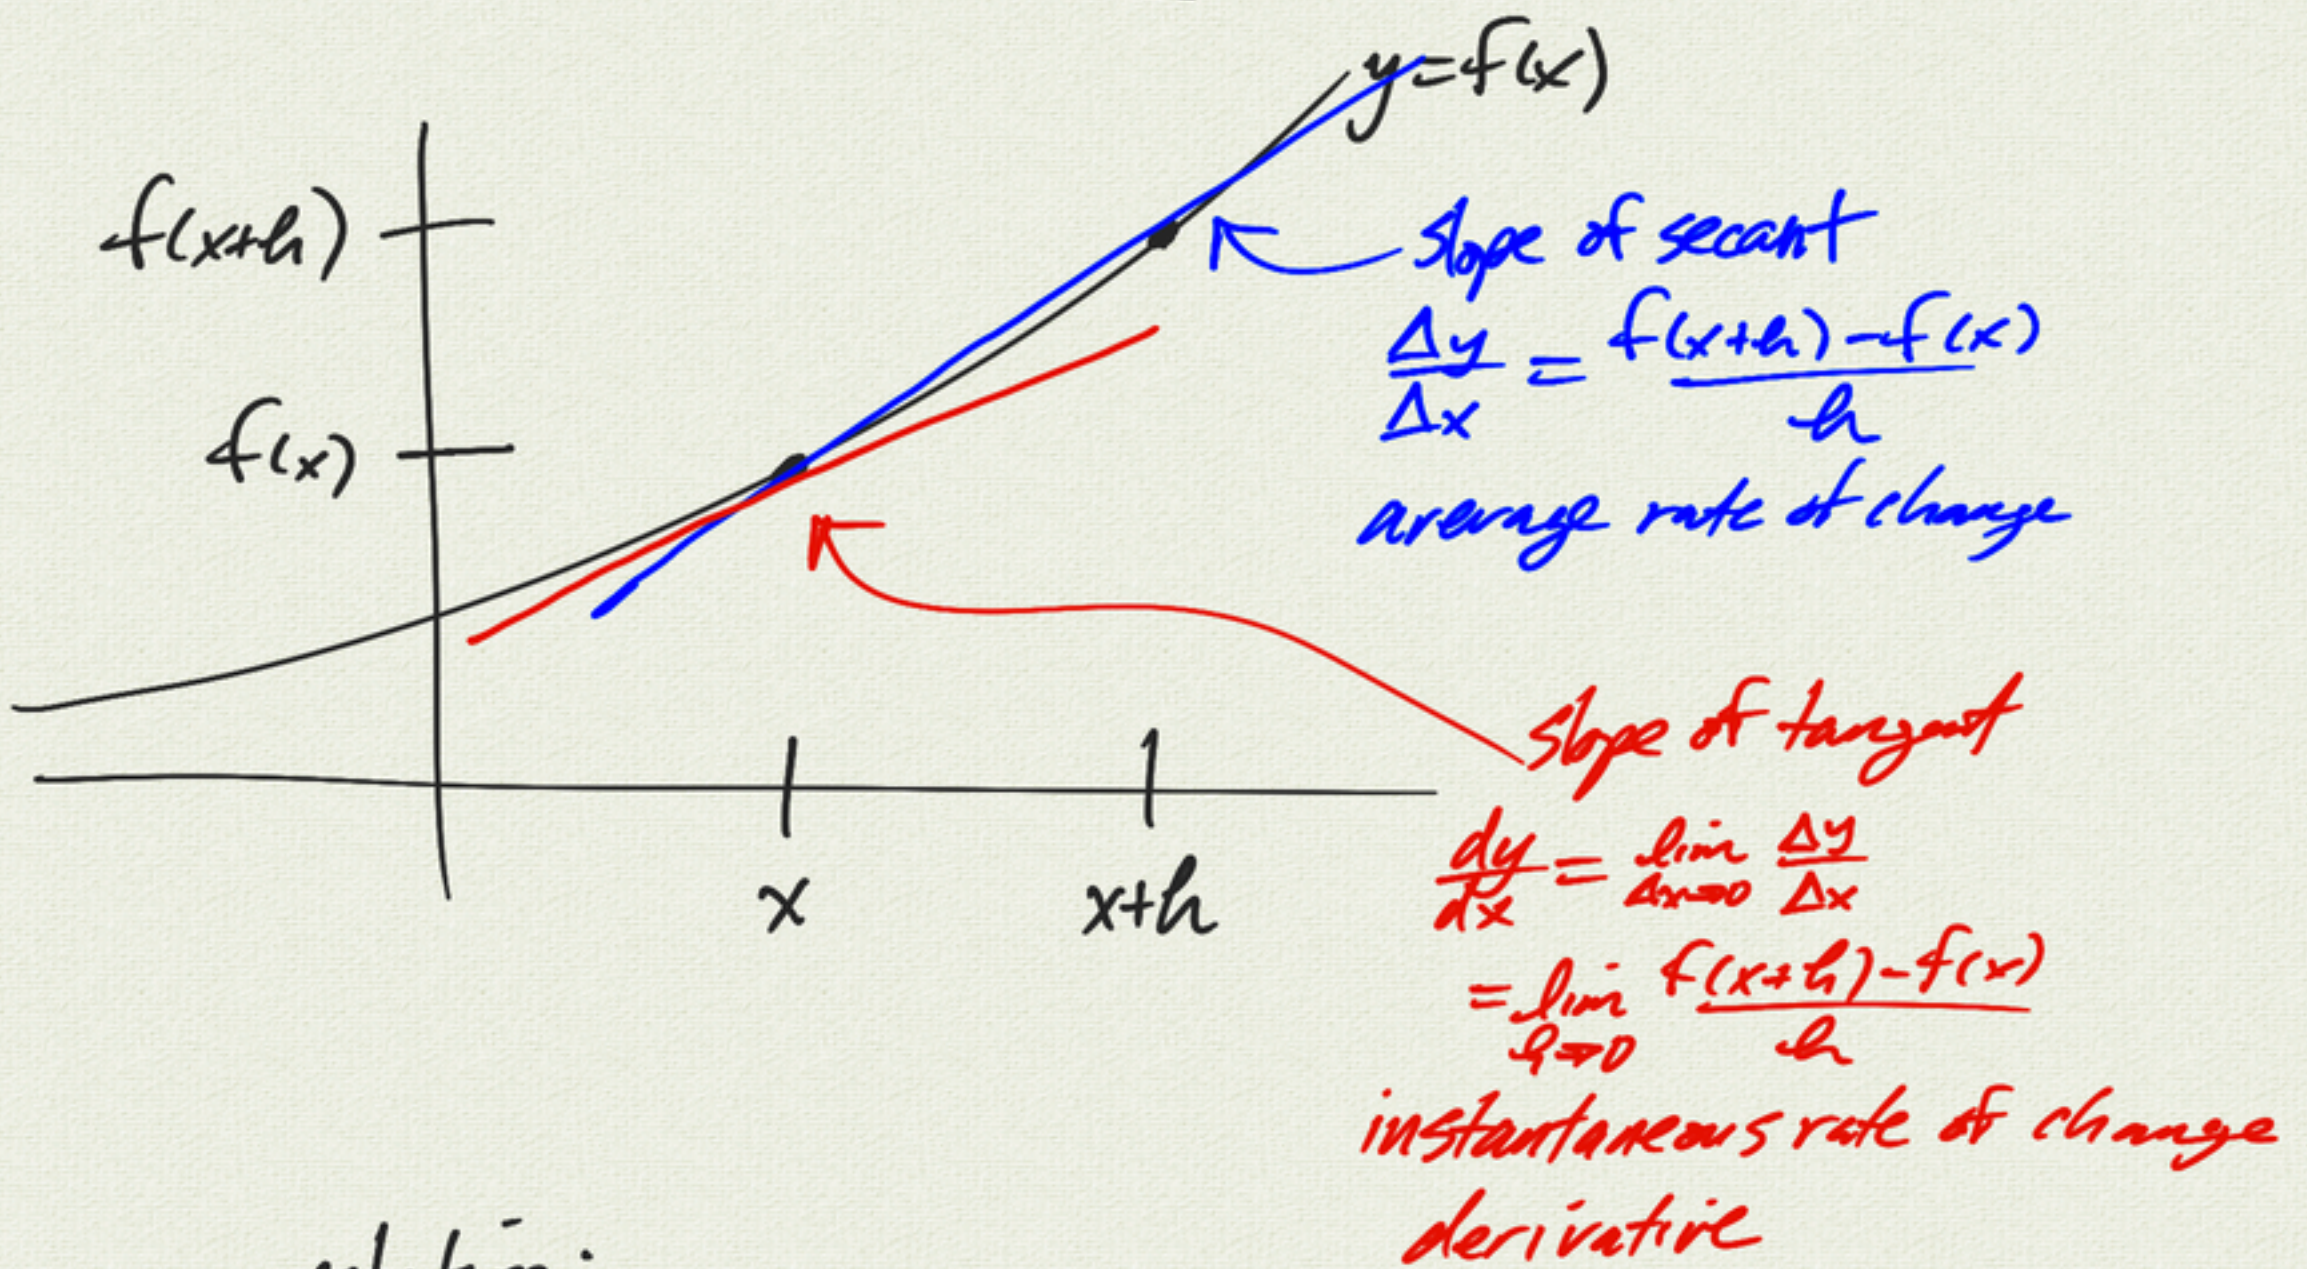 y=f(x)
f(x+h)
f(x)
x
x+h
slope of secant
Δy/Δx = (f(x+h)-f(x))/h
average rate of change
slope of tangent
dy/dx = lim Δx→0 Δy/Δx
= lim h→0 (f(x+h)-f(x))/h
instantaneous rate of change
derivative